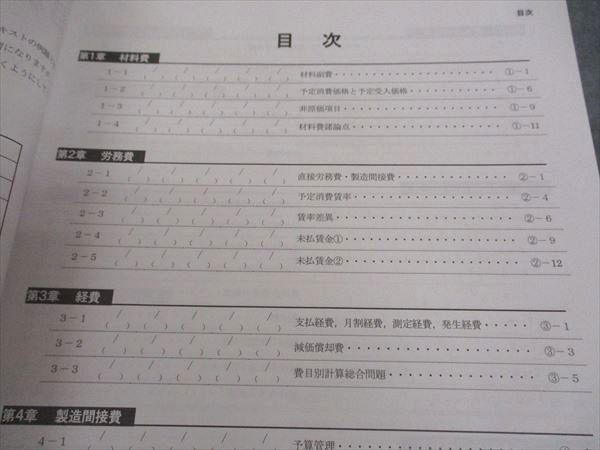 目次
目 次
キストの例題
習になります
くようにして
第1章 材料費
1-1 / / / / / / ( ) ( ) ( ) ( ) ( ) ( ) 材料副費・・・・・・・・・・・・・・・・・・・・ ①-1
1-2 / / / / / / ( ) ( ) ( ) ( ) ( ) ( ) 予定消費価格と予定受入価格・・・・・・・・・・・ ①-6
1-3 / / / / / / ( ) ( ) ( ) ( ) ( ) ( ) 非原価項目・・・・・・・・・・・・・・・・・・・ ①-9
1-4 / / / / / / ( ) ( ) ( ) ( ) ( ) ( ) 材料費諸論点・・・・・・・・・・・・・・・・・・ ①-11
第2章 労務費
2-1 / / / / / / ( ) ( ) ( ) ( ) ( ) ( ) 直接労務費・製造間接費・・・・・・・・・・・・・ ②-1
2-2 / / / / / / ( ) ( ) ( ) ( ) ( ) ( ) 予定消費賃率・・・・・・・・・・・・・・・・・・ ②-4
2-3 / / / / / / ( ) ( ) ( ) ( ) ( ) ( ) 賃率差異・・・・・・・・・・・・・・・・・・・・ ②-6
2-4 / / / / / / ( ) ( ) ( ) ( ) ( ) ( ) 未払賃金①・・・・・・・・・・・・・・・・・・・ ②-9
2-5 / / / / / / ( ) ( ) ( ) ( ) ( ) ( ) 未払賃金②・・・・・・・・・・・・・・・・・・・ ②-12
第3章 経費
3-1 / / / / / / ( ) ( ) ( ) ( ) ( ) ( ) 支払経費，月割経費，測定経費，発生経費・・・・・ ③-1
3-2 / / / / / / ( ) ( ) ( ) ( ) ( ) ( ) 減価償却費・・・・・・・・・・・・・・・・・・・ ③-3
3-3 / / / / / / ( ) ( ) ( ) ( ) ( ) ( ) 費目別計算総合問題・・・・・・・・・・・・・・・ ③-5
第4章 製造間接費
4-1 / / / / / / 予算管理・・・・・・・・・・・・・・・・・・・・